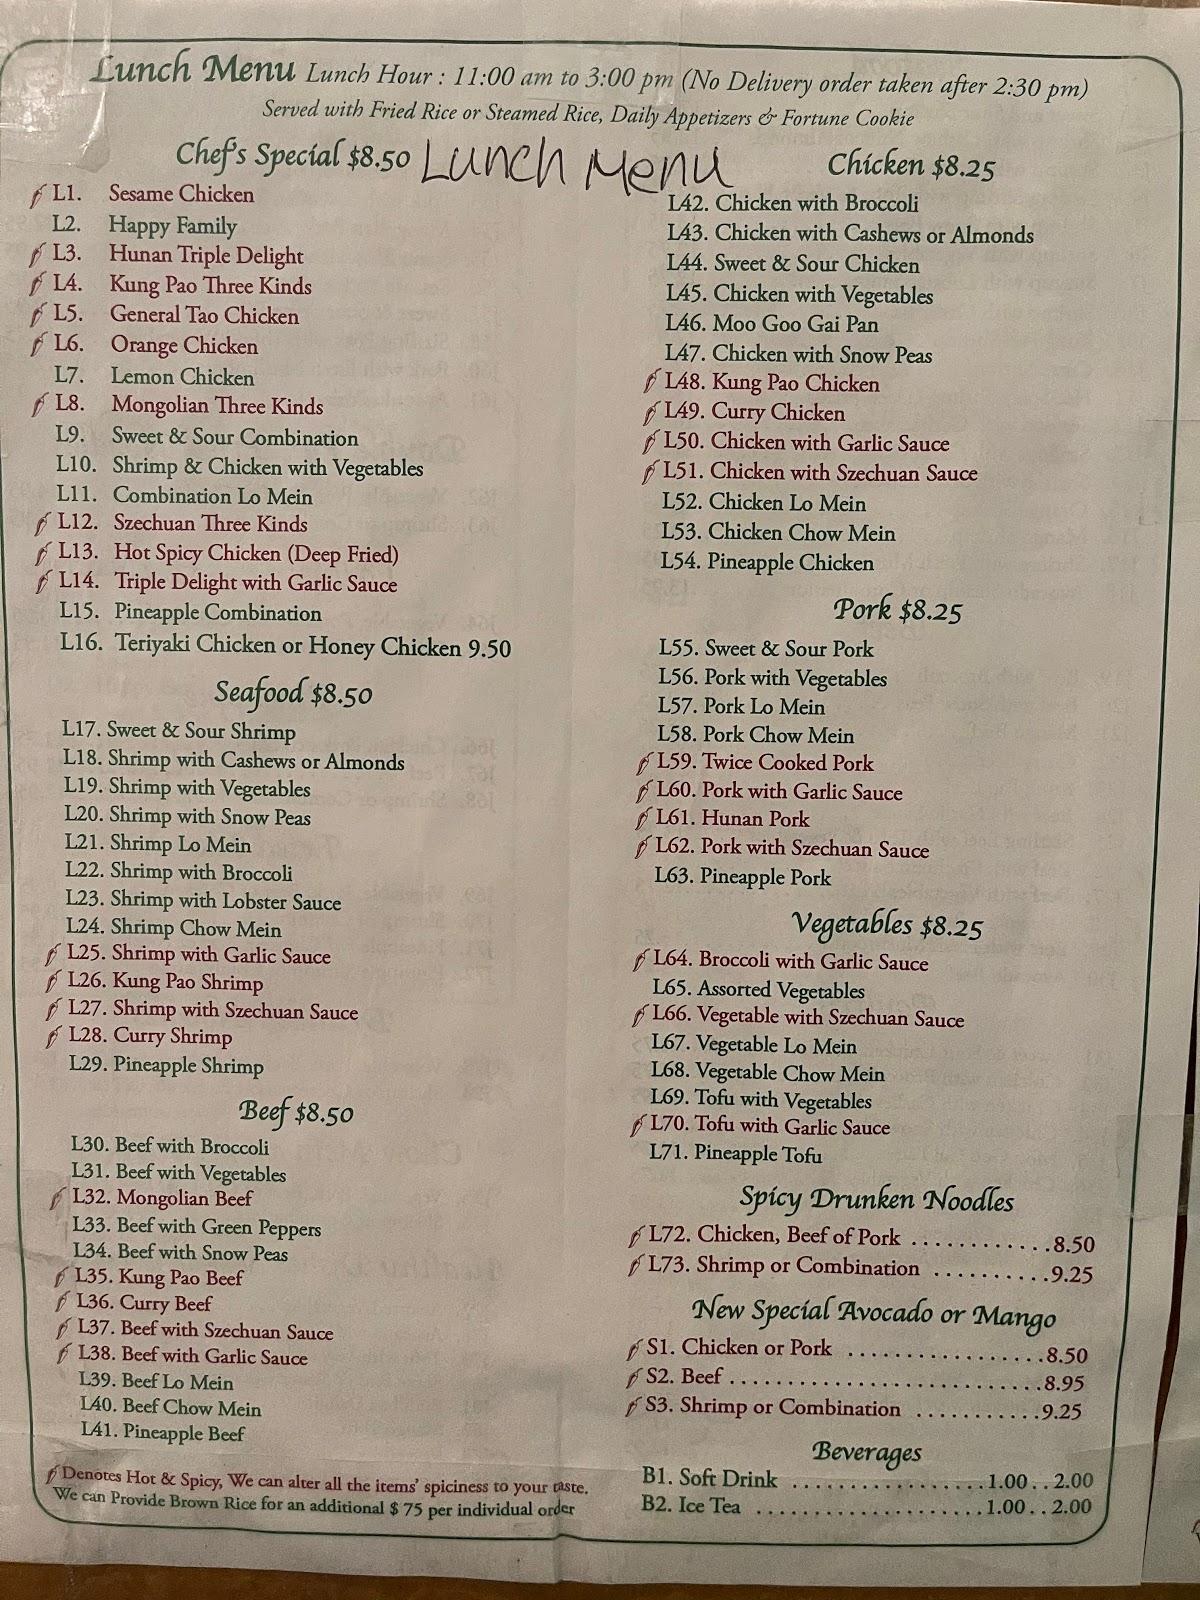 Lunch Menu Lunch Hour : 11:00 am to 3:00 pm (No Delivery order taken after 2:30 pm)
Served with Fried Rice or Steamed Rice, Daily Appetizers & Fortune Cookie
Lunch Menu
Chef's Special $8.50
L1. Sesame Chicken
L2. Happy Family
L3. Hunan Triple Delight
L4. Kung Pao Three Kinds
L5. General Tao Chicken
L6. Orange Chicken
L7. Lemon Chicken
L8. Mongolian Three Kinds
L9. Sweet & Sour Combination
L10. Shrimp & Chicken with Vegetables
L11. Combination Lo Mein
L12. Szechuan Three Kinds
L13. Hot Spicy Chicken (Deep Fried)
L14. Triple Delight with Garlic Sauce
L15. Pineapple Combination
L16. Teriyaki Chicken or Honey Chicken 9.50
Seafood $8.50
L17. Sweet & Sour Shrimp
L18. Shrimp with Cashews or Almonds
L19. Shrimp with Vegetables
L20. Shrimp with Snow Peas
L21. Shrimp Lo Mein
L22. Shrimp with Broccoli
L23. Shrimp with Lobster Sauce
L24. Shrimp Chow Mein
L25. Shrimp with Garlic Sauce
L26. Kung Pao Shrimp
L27. Shrimp with Szechuan Sauce
L28. Curry Shrimp
L29. Pineapple Shrimp
Beef $8.50
L30. Beef with Broccoli
L31. Beef with Vegetables
L32. Mongolian Beef
L33. Beef with Green Peppers
L34. Beef with Snow Peas
L35. Kung Pao Beef
L36. Curry Beef
L37. Beef with Szechuan Sauce
L38. Beef with Garlic Sauce
L39. Beef Lo Mein
L40. Beef Chow Mein
L41. Pineapple Beef
Denotes Hot & Spicy, We can alter all the items' spiciness to your taste.
We can Provide Brown Rice for an additional $ 75 per individual order
Chicken $8.25
L42. Chicken with Broccoli
L43. Chicken with Cashews or Almonds
L44. Sweet & Sour Chicken
L45. Chicken with Vegetables
L46. Moo Goo Gai Pan
L47. Chicken with Snow Peas
L48. Kung Pao Chicken
L49. Curry Chicken
L50. Chicken with Garlic Sauce
L51. Chicken with Szechuan Sauce
L52. Chicken Lo Mein
L53. Chicken Chow Mein
L54. Pineapple Chicken
Pork $8.25
L55. Sweet & Sour Pork
L56. Pork with Vegetables
L57. Pork Lo Mein
L58. Pork Chow Mein
L59. Twice Cooked Pork
L60. Pork with Garlic Sauce
L61. Hunan Pork
L62. Pork with Szechuan Sauce
L63. Pineapple Pork
Vegetables $8.25
L64. Broccoli with Garlic Sauce
L65. Assorted Vegetables
L66. Vegetable with Szechuan Sauce
L67. Vegetable Lo Mein
L68. Vegetable Chow Mein
L69. Tofu with Vegetables
L70. Tofu with Garlic Sauce
L71. Pineapple Tofu
Spicy Drunken Noodles
L72. Chicken, Beef of Pork ............8.50
L73. Shrimp or Combination ..........9.25
New Special Avocado or Mango
S1. Chicken or Pork .................8.50
S2. Beef ............................8.95
S3. Shrimp or Combination ...........9.25
Beverages
B1. Soft Drink .................1.00 . . 2.00
B2. Ice Tea ....................1.00 . . 2.00